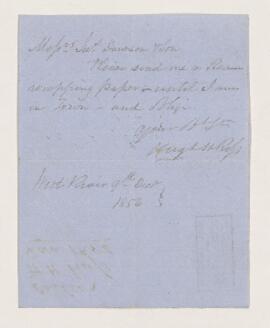 Messrs Jas. Dawson & Son
Please send me a Ream
wrapping paper – until I am
in Town – and Oblige
Your Obt St
Hugh McRoss
West River 9th Decr
1856